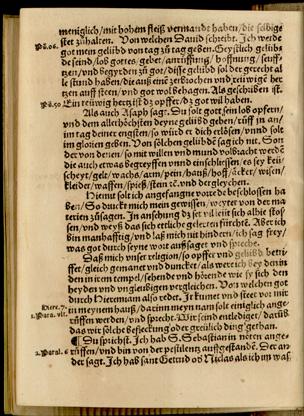 meniglich/mit hohem fleiß vermandt haben/die selbige
stet zůhalten. Von welchen Dauid schreibt. Ich werde
got mein gelübd von tag zů tag geben. Geystlich gelübd
de seind/lob gottes/gebet/anrüffung/hoffnung/seuff-
tzen/vnd begyrden zů got/disse gelübd sol der gerecht al
le stund thůn/das auß eine zerbrochen vnd reüwige her
tzen auff steen/vnd got wol behagen. Als geschriben ist.
Ein reüwig hertz ist dz opffer/dz got wil haben.
Als auch Asaph sagt. Du solt gott sein lob opfern/
vnd dem allerhöchsten deyne gelübd geben/rüff in an/
im tag deiner engsten/so würd er dich erlösen/vnnd solt
im glorien geben. Von sölchen gelübde sag ich nit. Son
der von denen/so mit willen vnd mund volbracht werdē
die auch etwas begreyffen vnnd einschliessen/es sey keü-
scheyt/gelt/wachs/arm/pein/hauß/hoff/äcker/wisen/
kleider/waffen/spieß/stein zc. vnd dergleychen.
Hiemit solt ich anfangne vorrede beschlossen ha
ben/So druckt mich mein gewissen/weyter von der ma
terien zůsagen. In anschung dz ich allhie stos
sen/vnd weyß das ich etliche gelerten fürcht. Aber ich
bin manhafftig/vnd laß mich nit hindren/ich sag frey/
was got durch seyne wort außsaget vnd spreche.
Daß mich vnser religion/so opffer vnd gelübd betri-
fft/gleich gemanet vnd duncket/als
den in irem tempel/sehende vnd hörende wie sy sich den
heyden vnd vngleubigen vergleichen. Von welchen got
durch Hieremiam also redet. Ir kumet vnd steet vor mir
Hiere. 7.
in meynem hauß/darinn meyn nam solt ewiglich ange-
rüffen werden/vnd sprecht. Wir seind entlediget/darüb
das wir solche befleckung oder greülich ding gethan.
¶ Du sprichst. Ich hab S. Sebastian in nöten ange-
2. Paral. 6
rüffen/vnd bin von der pestilentz auffgestanden. Der an
der sagt. Ich hab sant Gettrud oder Niclas als ich im was